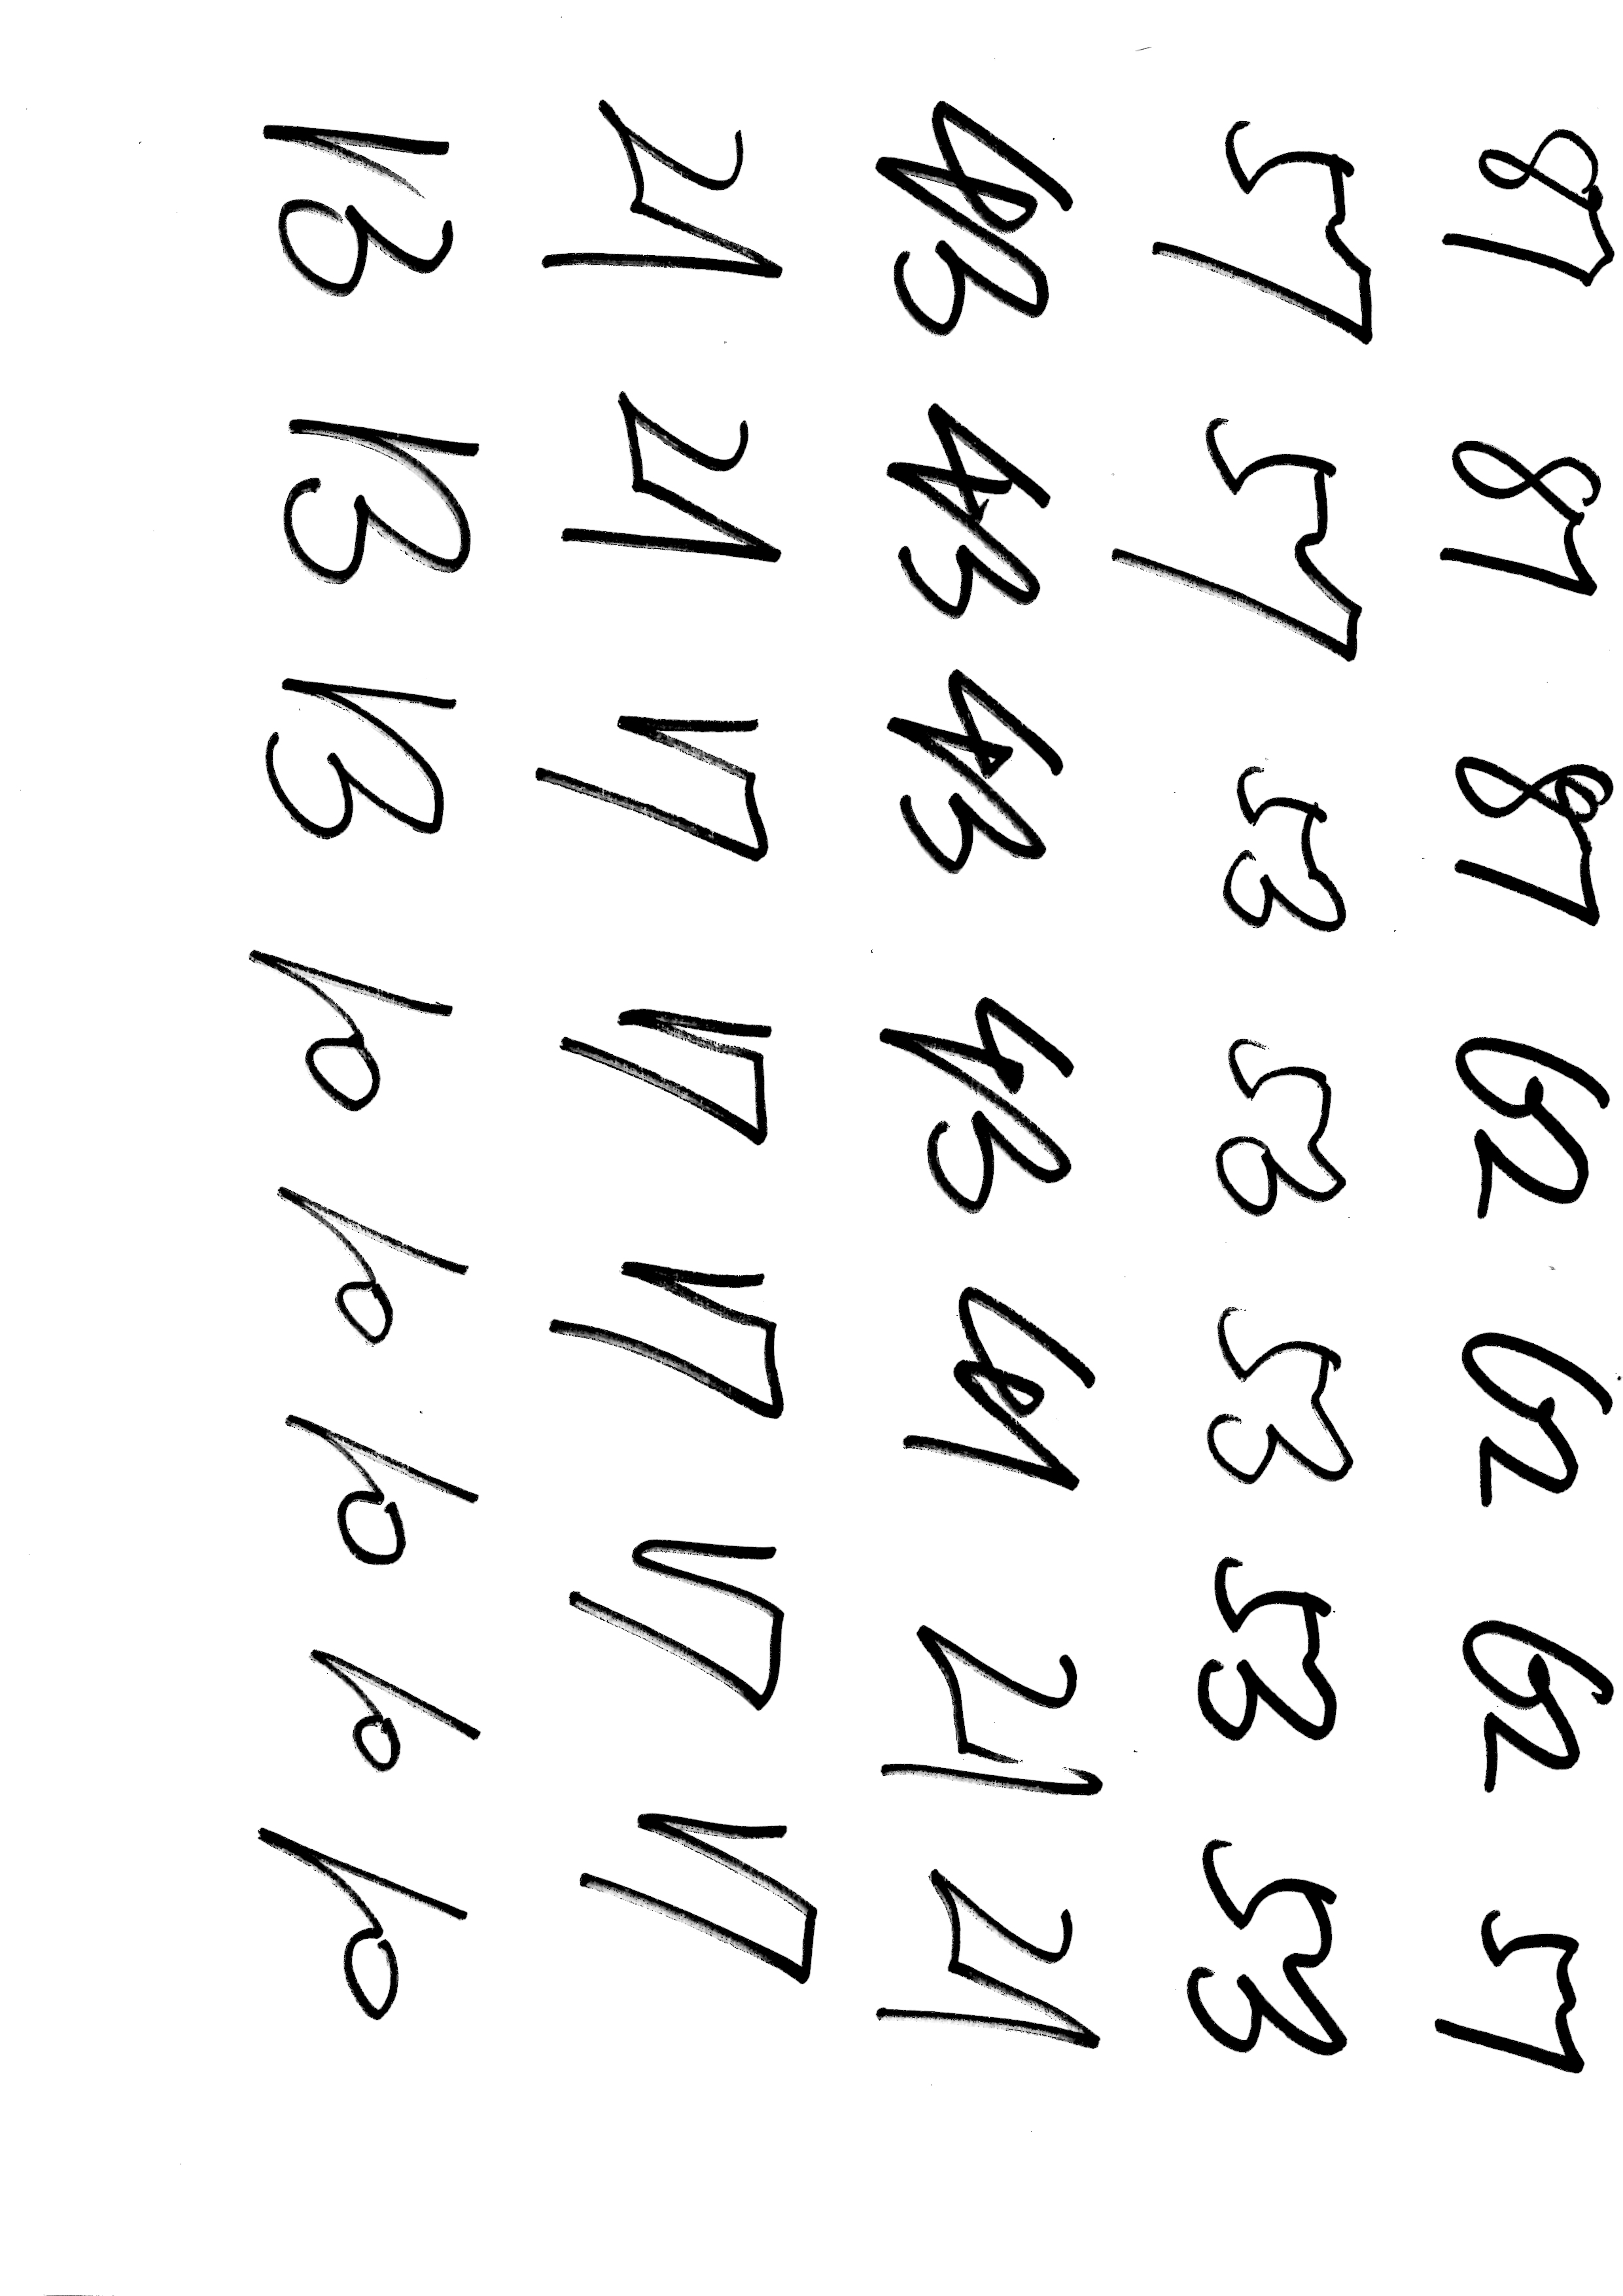 87 87 87 62 62 62 57
57 57 53 53 53 53 53
43 43 43 43 41 21 21
21 21 17 17 17 17 17
13 13 13 10 10 10 10 10